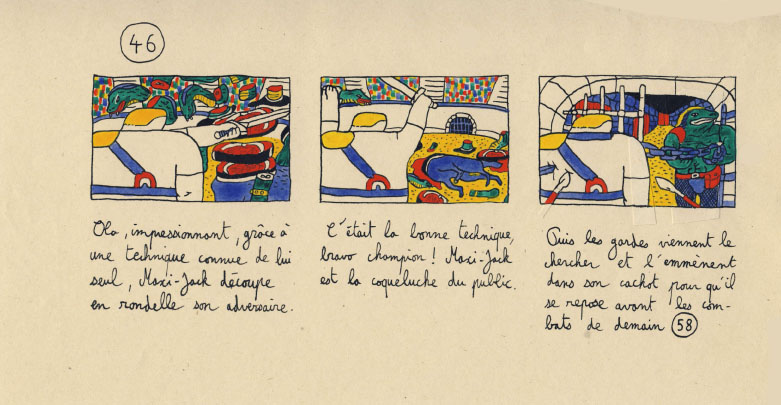 46
Ola, impressionnant, grâce à
une technique connue de lui
seul, Maxi-Jack découpe
en rondelle son adversaire.
C'était la bonne technique,
bravo champion ! Maxi-Jack
est la coqueluche du public.
Puis les gardes viennent le
chercher et l'emmènent
dans son cachot pour qu'il
se repose avant les com-
bats de demain 58